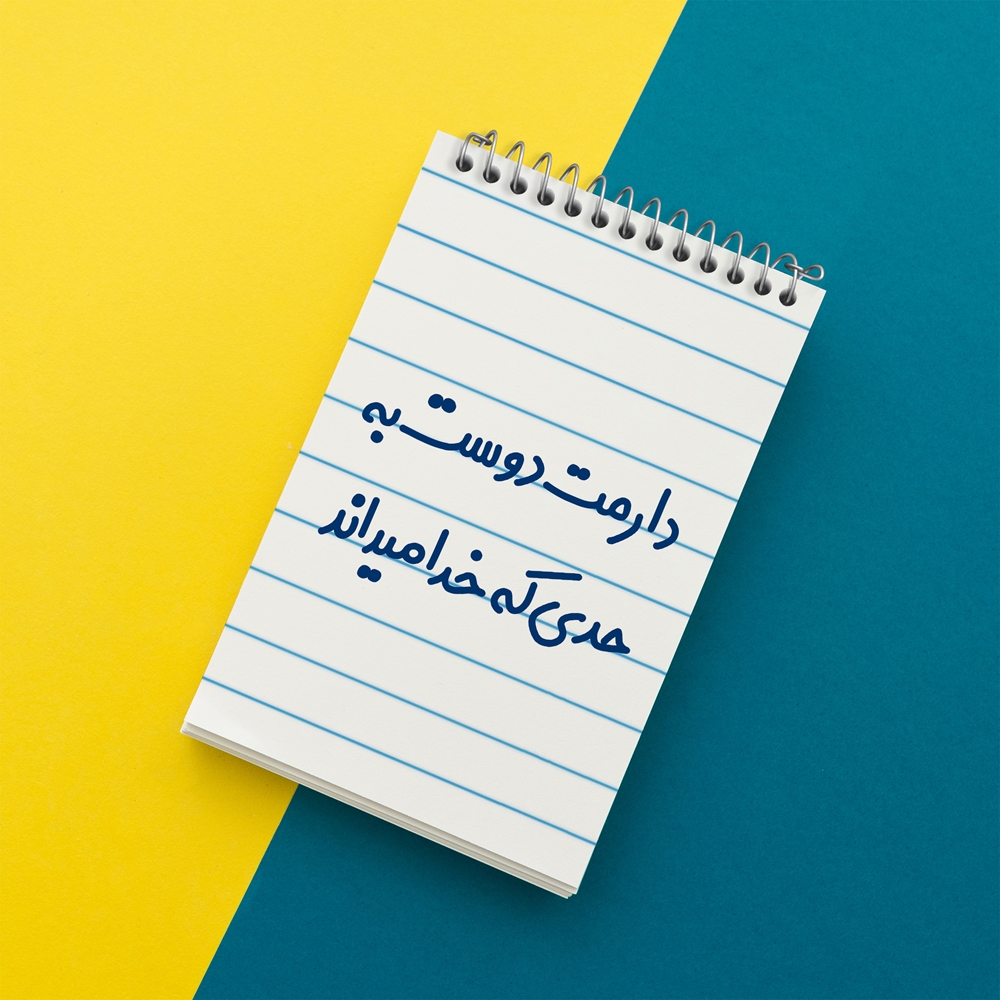 دارمت دوست به
حدی که خدا میراند